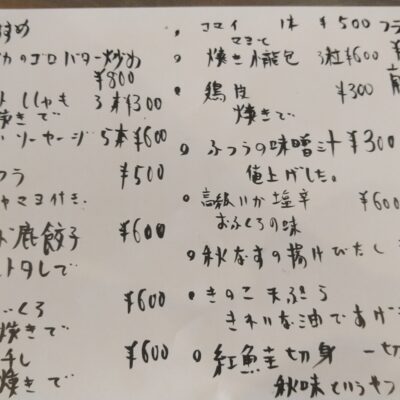 すめ
カのゴロバター炒め
¥800
ししゃも 3本¥300
焼きで
ソーセージ 5本¥600
フラ ¥500
ヤマヨ付き.
鹿餃子 ¥600
トタレで
いくら ¥600
焼きで
干し ¥600
焼きで
コマイ 1本 ¥500 フラ
マヨで
焼き小籠包 3粒¥600
鶏皮 ¥300
焼きで
ふつうの味噌汁¥300
値上げした。
高級いか塩辛 ¥600
おふくろの味
秋なすの揚げびたし
きのこ天ぷら
きれいな油であげ
紅鮭切身 一切
秋味というやつ